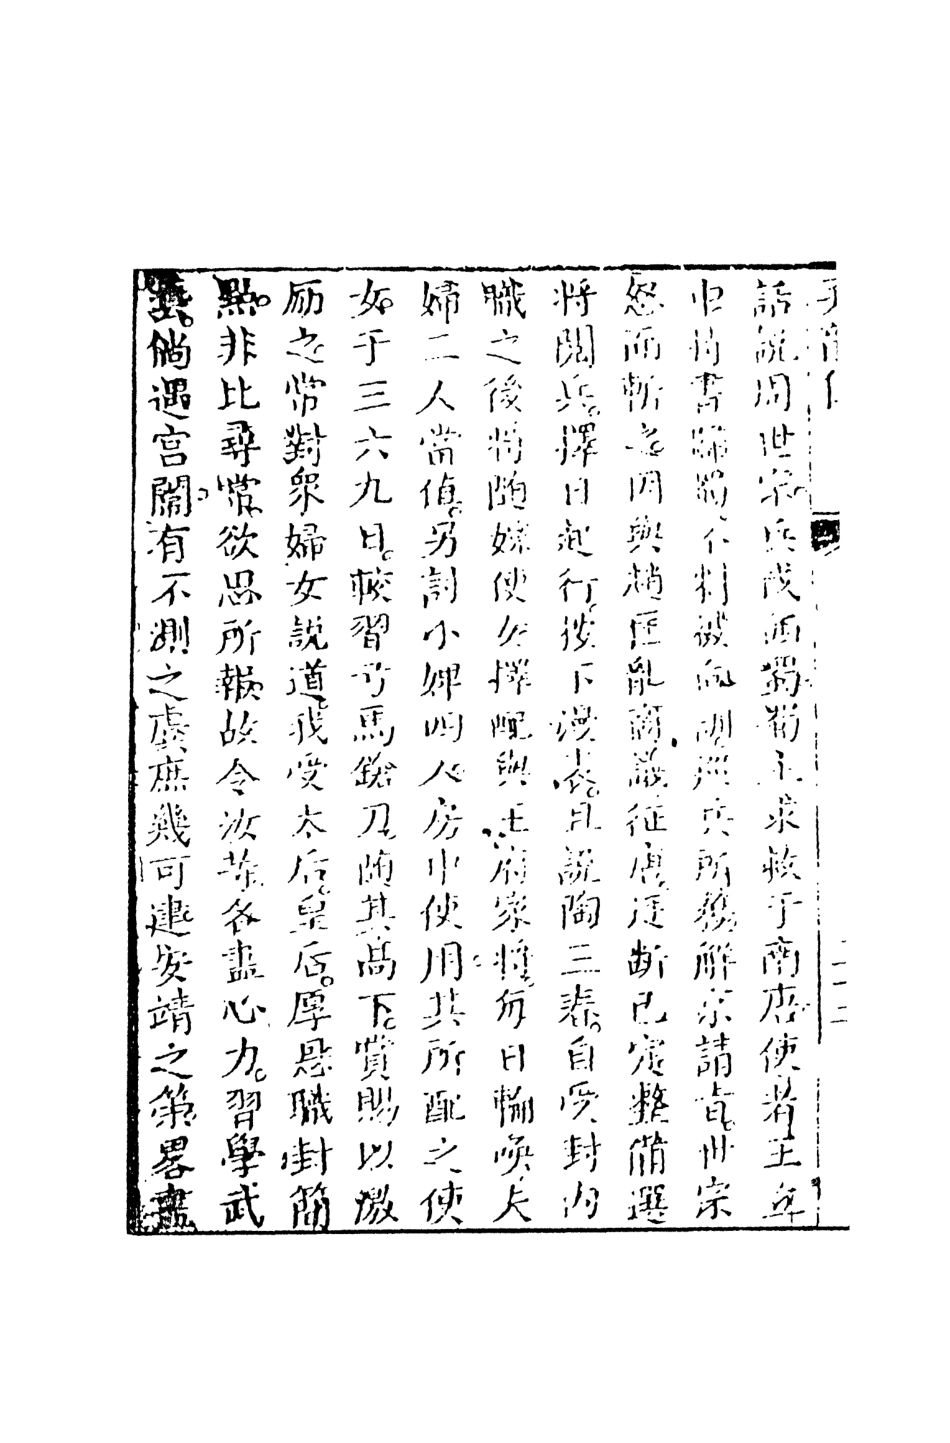 話說周世宗兵伐西蜀蜀主求救于南唐使者王立
中持書歸蜀不料被向訓巡兵所獲解京請旨世宗
怒而斬之因與趙匡胤商議征唐廷斷已定整備選
將閱兵擇日起行後下漫表且說陶三春自受封內
職之後將隨嫁使女擇配與王府家將每日輪喚夫
婦二人當值另討小婢四人房中使用其所配之使
女于三六九日核習弓馬鎗刀隨其高下賞賜以激
勵之常對衆婦女說道我受太后皇后厚恩職封簡
點非比尋常欲思所報故令汝等各盡心力習學武
藝倘遇宮闈有不測之虞庶幾可建安靖之策畧盡